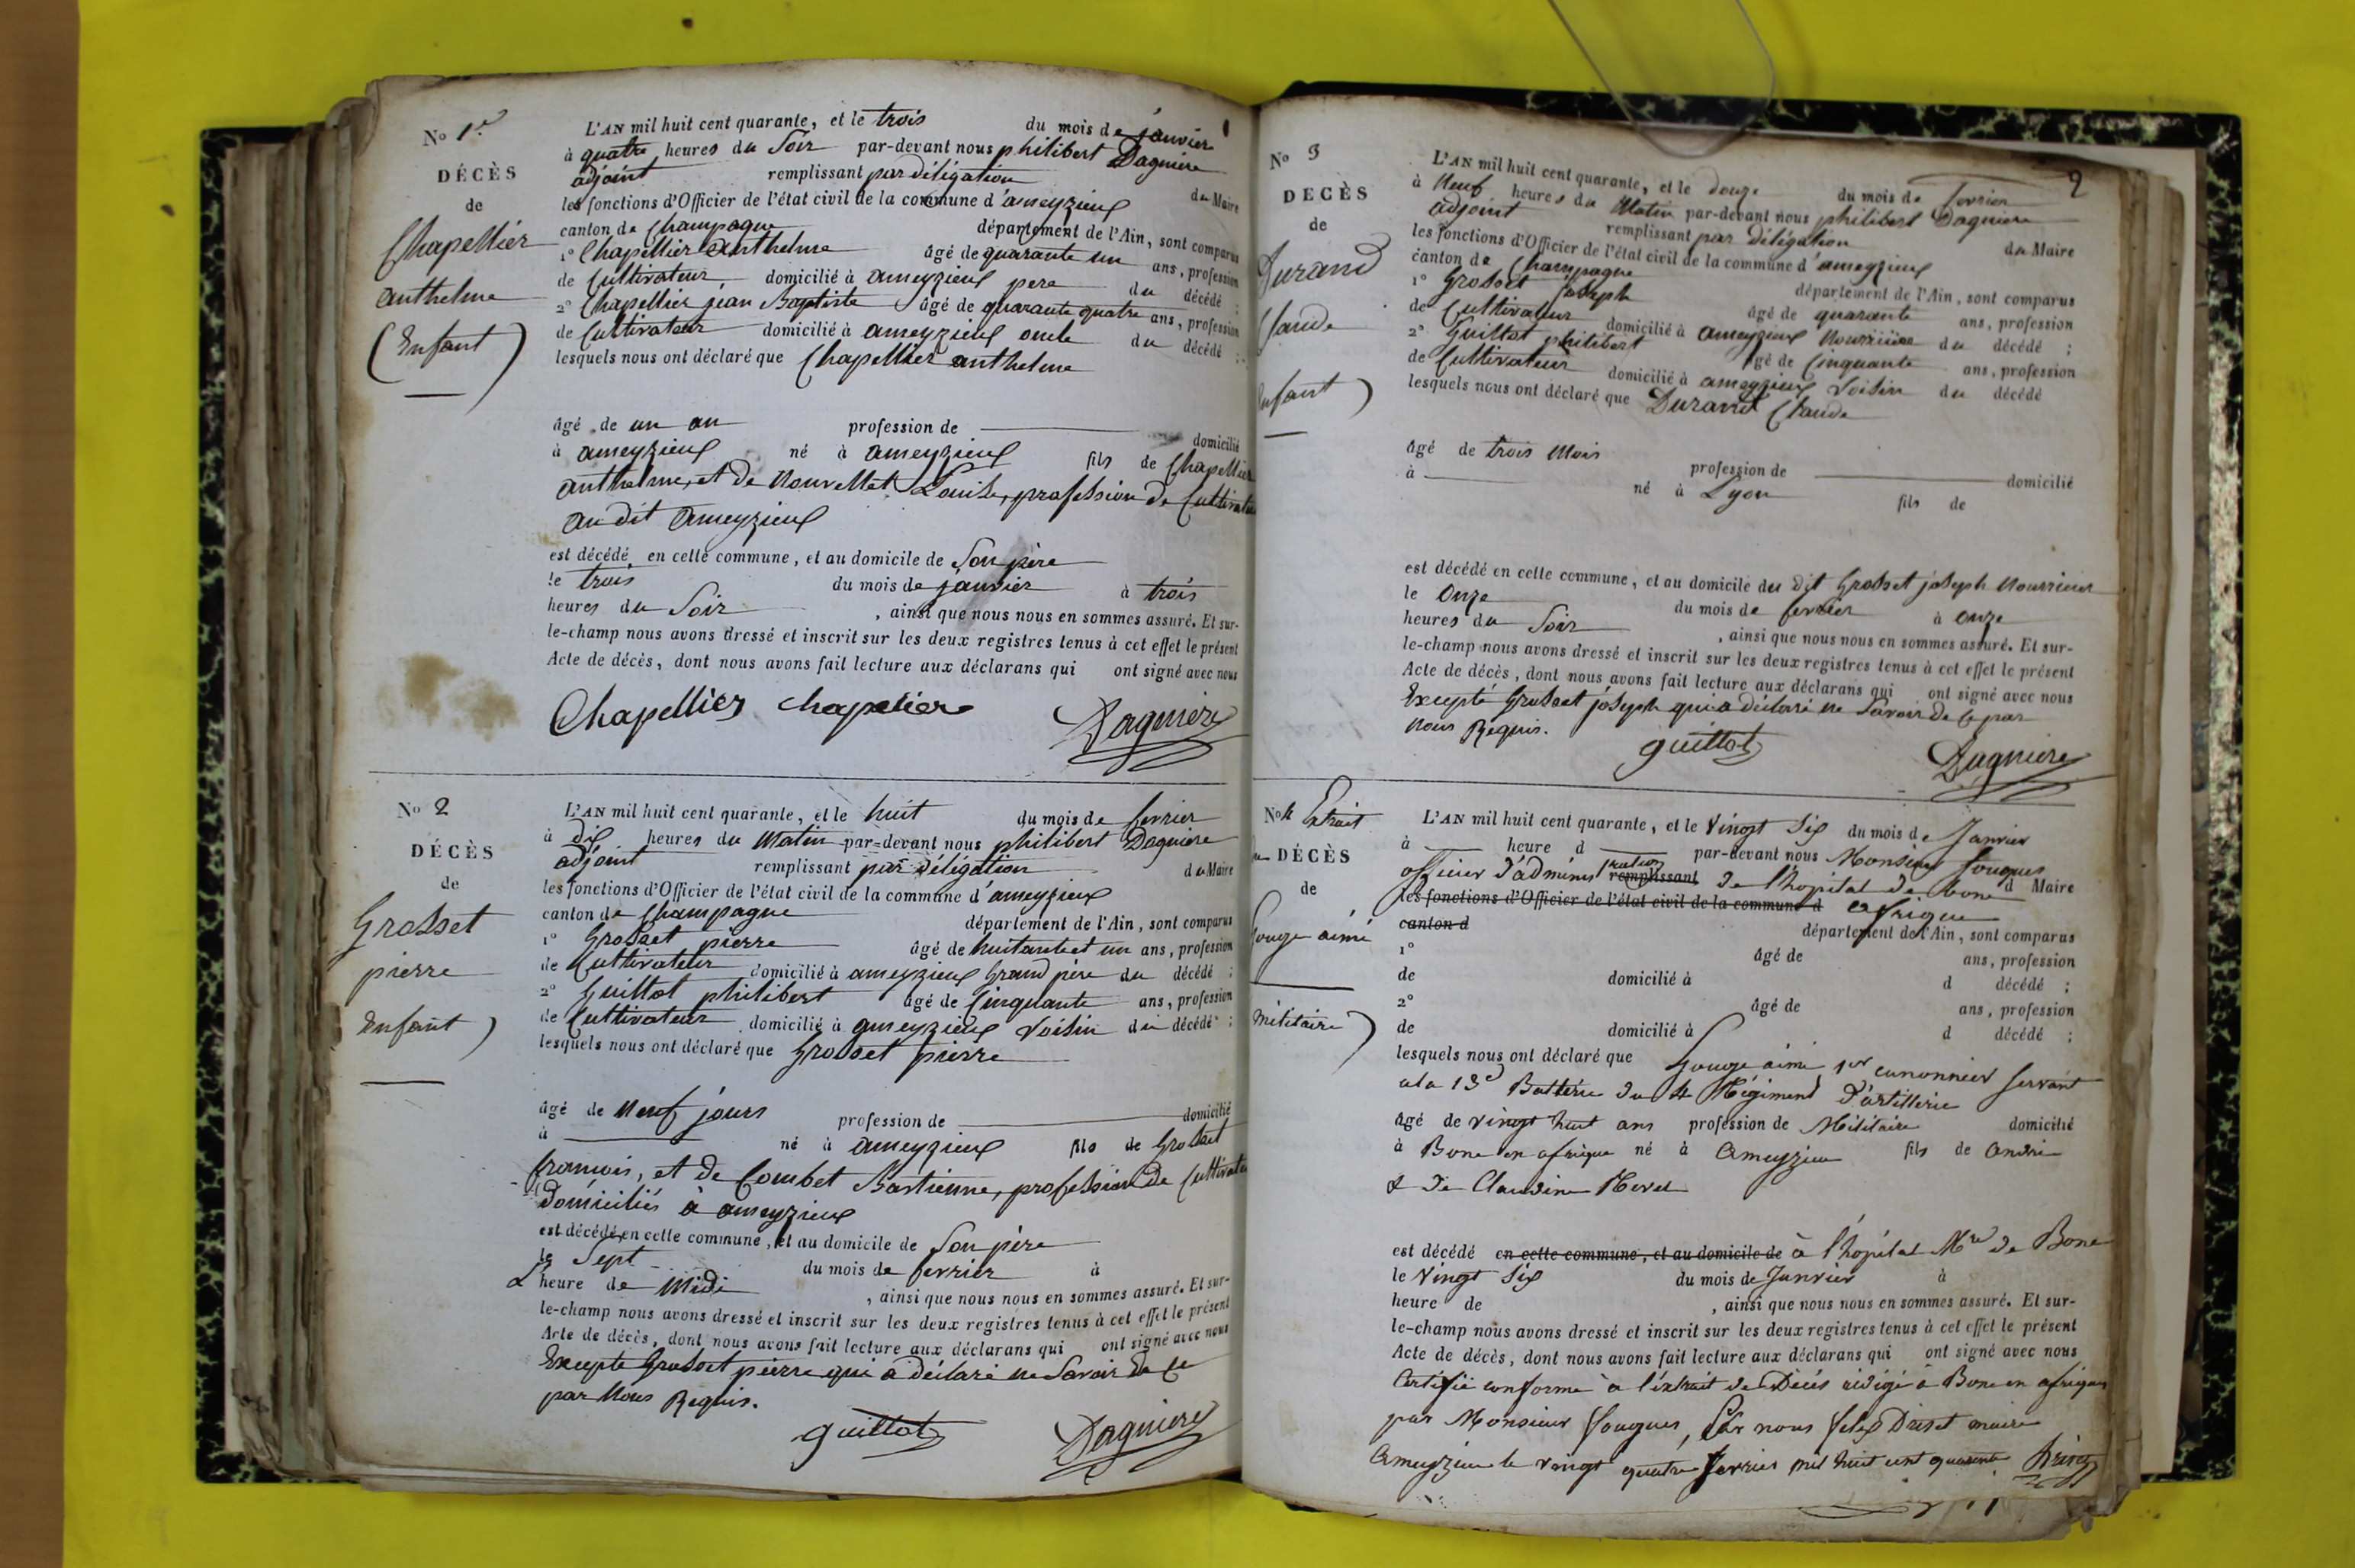 1
No 1er
DÉCÈS
de
Chapellier
anthelme
(Enfant)
L'AN mil huit cent quarante, et le trois du mois de janvier
à quatre heures du Soir par-devant nous philibert Dagnière
adjoint remplissant par délégation du Maire
les fonctions d'Officier de l'état civil de la commune d'ameyzieux
canton de Champagne département de l'Ain, sont comparus
1° Chapellier Anthelme âgé de quarante un ans, profession
de Cultivateur domicilié à ameyzieux pere du décédé ;
2° Chapellier jean Baptiste âgé de quarante quatre ans, profession
de Cultivateur domicilié à ameyzieux oncle du décédé ;
lesquels nous ont déclaré que Chapellier anthelme
âgé de un an profession de domicilié
à ameyzieux né à ameyzieux fils de Chapellier
anthelme, et de Louise, profession de Cultivateur
au dit Ameyzieux
est décédé en cette commune, et au domicile de Son père
le trois du mois de janvier à trois
heures du Soir , ainsi que nous nous en sommes assuré. Et sur-
le-champ nous avons dressé et inscrit sur les deux registres tenus à cet effet le présent
Acte de décès, dont nous avons fait lecture aux déclarans qui ont signé avec nous
Chapellier chapelier Dagniere
No 2
DÉCÈS
de
Grosset
pierre
Enfant)
L'AN mil huit cent quarante, et le huit du mois de fevrier
à dix heures du Matin par-devant nous philibert Dagniere
adjoint remplissant par délégation du Maire
les fonctions d'Officier de l'état civil de la commune d'ameyzieux
canton de Champagne département de l'Ain, sont comparus
1° Grosset pierre âgé de huitante et un ans, profession
de Cultivateur domicilié à ameyzieux Grand père du décédé ;
2° Guillot philibert âgé de Cinquante ans, profession
de Cultivateur domicilié à ameyzieux Voisin du décédé ;
lesquels nous ont déclaré que Grosset pierre
âgé de Neuf jours profession de domicilié
à né à ameyzieux fils de Grosset
francois, et de Combet Bastienne, profession de Cultivateur
domiciliés à ameyzieux
est décédé en cette commune, et au domicile de Son père
le Sept du mois de fevrier à
L'heure de Midi , ainsi que nous nous en sommes assuré. Et sur-
le-champ nous avons dressé et inscrit sur les deux registres tenus à cet effet le présent
Acte de décès, dont nous avons fait lecture aux déclarans qui ont signé avec nous
Excepte Grosset pierre qui a déclaré ne Savoir de ce
par Nous Requis.
guillot Dagniere
2
No 3
DÉCÈS
de
Durand
Claude
Enfant)
L'AN mil huit cent quarante, et le douze du mois de fevrier
à Neuf heures du Matin par-devant nous philibert Dagniere
adjoint remplissant par Délégation du Maire
les fonctions d'Officier de l'état civil de la commune d'ameyzieux
canton de Champagne département de l'Ain, sont comparus
1° Grosset joseph âgé de quarante ans, profession
de Cultivateur domicilié à ameyzieux du décédé ;
2° Guillot philibert âgé de Cinquante ans, profession
de Cultivateur domicilié à ameyzieux Voisin du décédé
lesquels nous ont déclaré que Durand Claude
âgé de trois Mois profession de domicilié
à né à Lyon fils de
est décédé en cette commune, et au domicile du dit Grosset joseph
le Onze du mois de fevrier à onze
heures du Soir , ainsi que nous nous en sommes assuré. Et sur-
le-champ nous avons dressé et inscrit sur les deux registres tenus à cet effet le présent
Acte de décès, dont nous avons fait lecture aux déclarans qui ont signé avec nous
Excepté Grosset jóseph qui a déclaré ne Savoir de ce par
Nous Requis.
guillot Dagniere
No 4 Extrait
DÉCÈS
de
Gouge aimé
Militaire)
L'AN mil huit cent quarante, et le Vingt Six du mois de Janvier
à heure d par-devant nous Monsieur fouques
officier d'administration remplissant de l'hopital de bone d Maire
les fonctions d'Officier de l'état civil de la commune d afrique
canton d département de l'Ain, sont comparus
1° âgé de ans, profession
de domicilié à d décédé ;
2° âgé de ans, profession
de domicilié à d décédé ;
lesquels nous ont déclaré que Gouge aimé 1er canonnier servant
a la 13e Batterie du 4 Régiment d'artillerie
âgé de vingt huit ans profession de Militaire domicilié
à Bone en afrique né à Ameyzieu fils de André
& de Claudine
est décédé en cette commune, et au domicile de à l'hopital Mre de Bone
le Vingt Six du mois de Janvier à
heure de , ainsi que nous nous en sommes assuré. Et sur-
le-champ nous avons dressé et inscrit sur les deux registres tenus à cet effet le présent
Acte de décès, dont nous avons fait lecture aux déclarans qui ont signé avec nous
Certifié conforme à l'extrait de Décés rédigé à Bone en afrique
par Monsieur fouques, Par nous felix maire
Ameyzieu le vingt quatre fevrier mil huit cent quarante